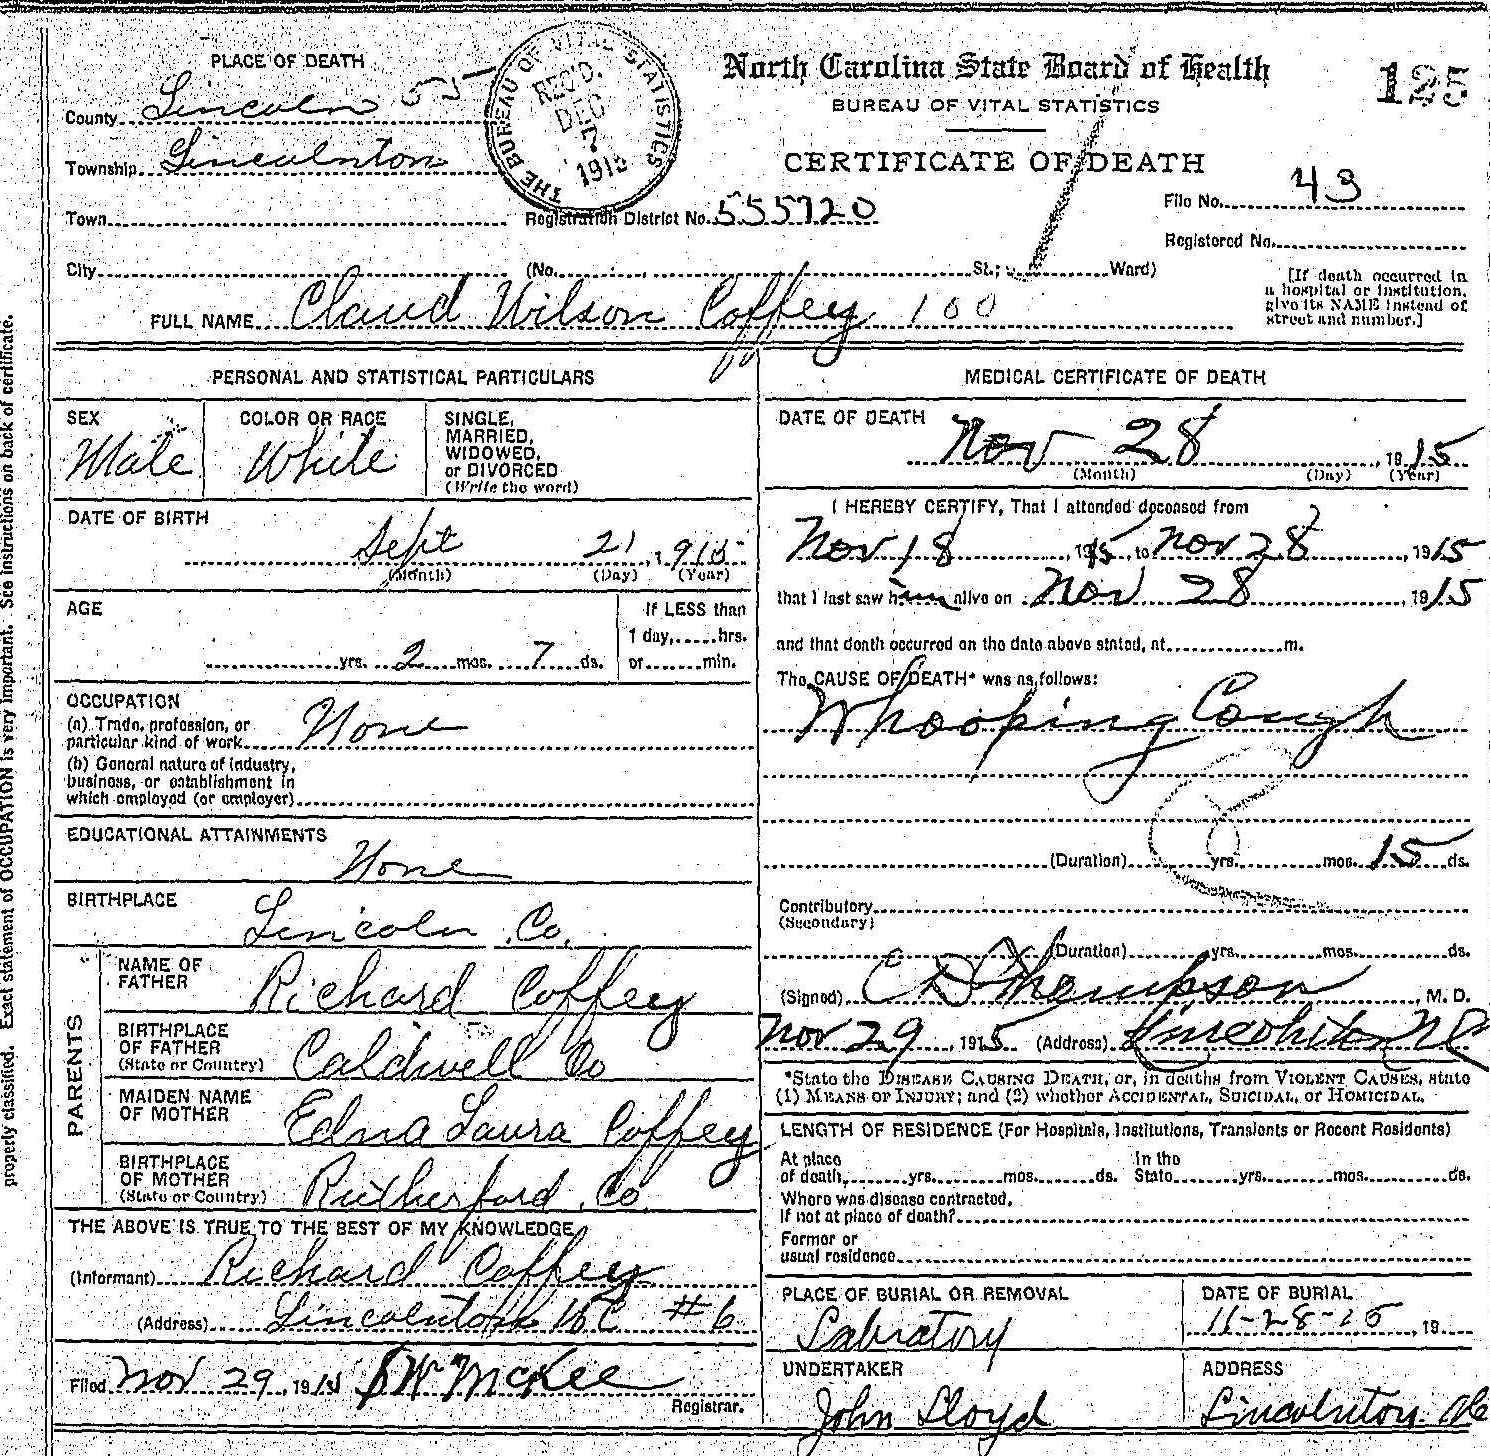 PLACE OF DEATH
County Lincoln 55
Township Lincolnton
Town
City (No. St.; Ward)
THE BUREAU OF VITAL STATISTICS
REC'D.
DEC
7
1915
North Carolina State Board of Health
BUREAU OF VITAL STATISTICS
125
CERTIFICATE OF DEATH
File No. 43
Registration District No. 555720
Registered No.
[If death occurred in
a hospital or institution,
give its NAME instead of
street and number.]
FULL NAME Claud Wilson Coffey 100
properly classified. Exact statement of OCCUPATION is very important. See instructions on back of certificate.
PERSONAL AND STATISTICAL PARTICULARS
SEX
Male
COLOR OR RACE
White
SINGLE,
MARRIED,
WIDOWED,
or DIVORCED
(Write the word)
DATE OF BIRTH
Sept 21, 1915
(Month) (Day) (Year)
AGE
yrs. 2 mos. 7 ds.
If LESS than
1 day, hrs.
or min.
OCCUPATION
(a) Trade, profession, or
particular kind of work None
(b) General nature of industry,
business, or establishment in
which employed (or employer)
EDUCATIONAL ATTAINMENTS
None
BIRTHPLACE
Lincoln Co.
PARENTS
NAME OF
FATHER
Richard Coffey
BIRTHPLACE
OF FATHER
(State or Country)
Caldwell Co
MAIDEN NAME
OF MOTHER
Edna Laura Coffey
BIRTHPLACE
OF MOTHER
(State or Country)
Rutherford Co.
THE ABOVE IS TRUE TO THE BEST OF MY KNOWLEDGE
(Informant) Richard Coffey
(Address) Lincolnton NC #6
Filed Nov 29, 191 McKee
Registrar.
MEDICAL CERTIFICATE OF DEATH
DATE OF DEATH
Nov 28, 1915
(Month) (Day) (Year)
I HEREBY CERTIFY, That I attended deceased from
Nov 18, 1915, to Nov 28, 1915
that I last saw him alive on Nov 28, 1915
and that death occurred on the date above stated, at m.
The CAUSE OF DEATH* was as follows:
Whooping Cough
(Duration) yrs. mos. 15 ds.
Contributory
(Secondary)
(Duration) yrs. mos. ds.
(Signed) C D Thompson, M. D.
Nov 29, 1915 (Address) Lincolnton NC
*State the DISEASE CAUSING DEATH, or, in deaths from VIOLENT CAUSES, state
(1) MEANS OF INJURY; and (2) whether ACCIDENTAL, SUICIDAL, or HOMICIDAL.
LENGTH OF RESIDENCE (For Hospitals, Institutions, Transients or Recent Residents)
At place
of death, yrs. mos. ds.
In the
State yrs. mos. ds.
Where was disease contracted,
If not at place of death?
Former or
usual residence
PLACE OF BURIAL OR REMOVAL
Labratory
DATE OF BURIAL
11-28-15, 19
UNDERTAKER
John Lloyd
ADDRESS
Lincolnton NC